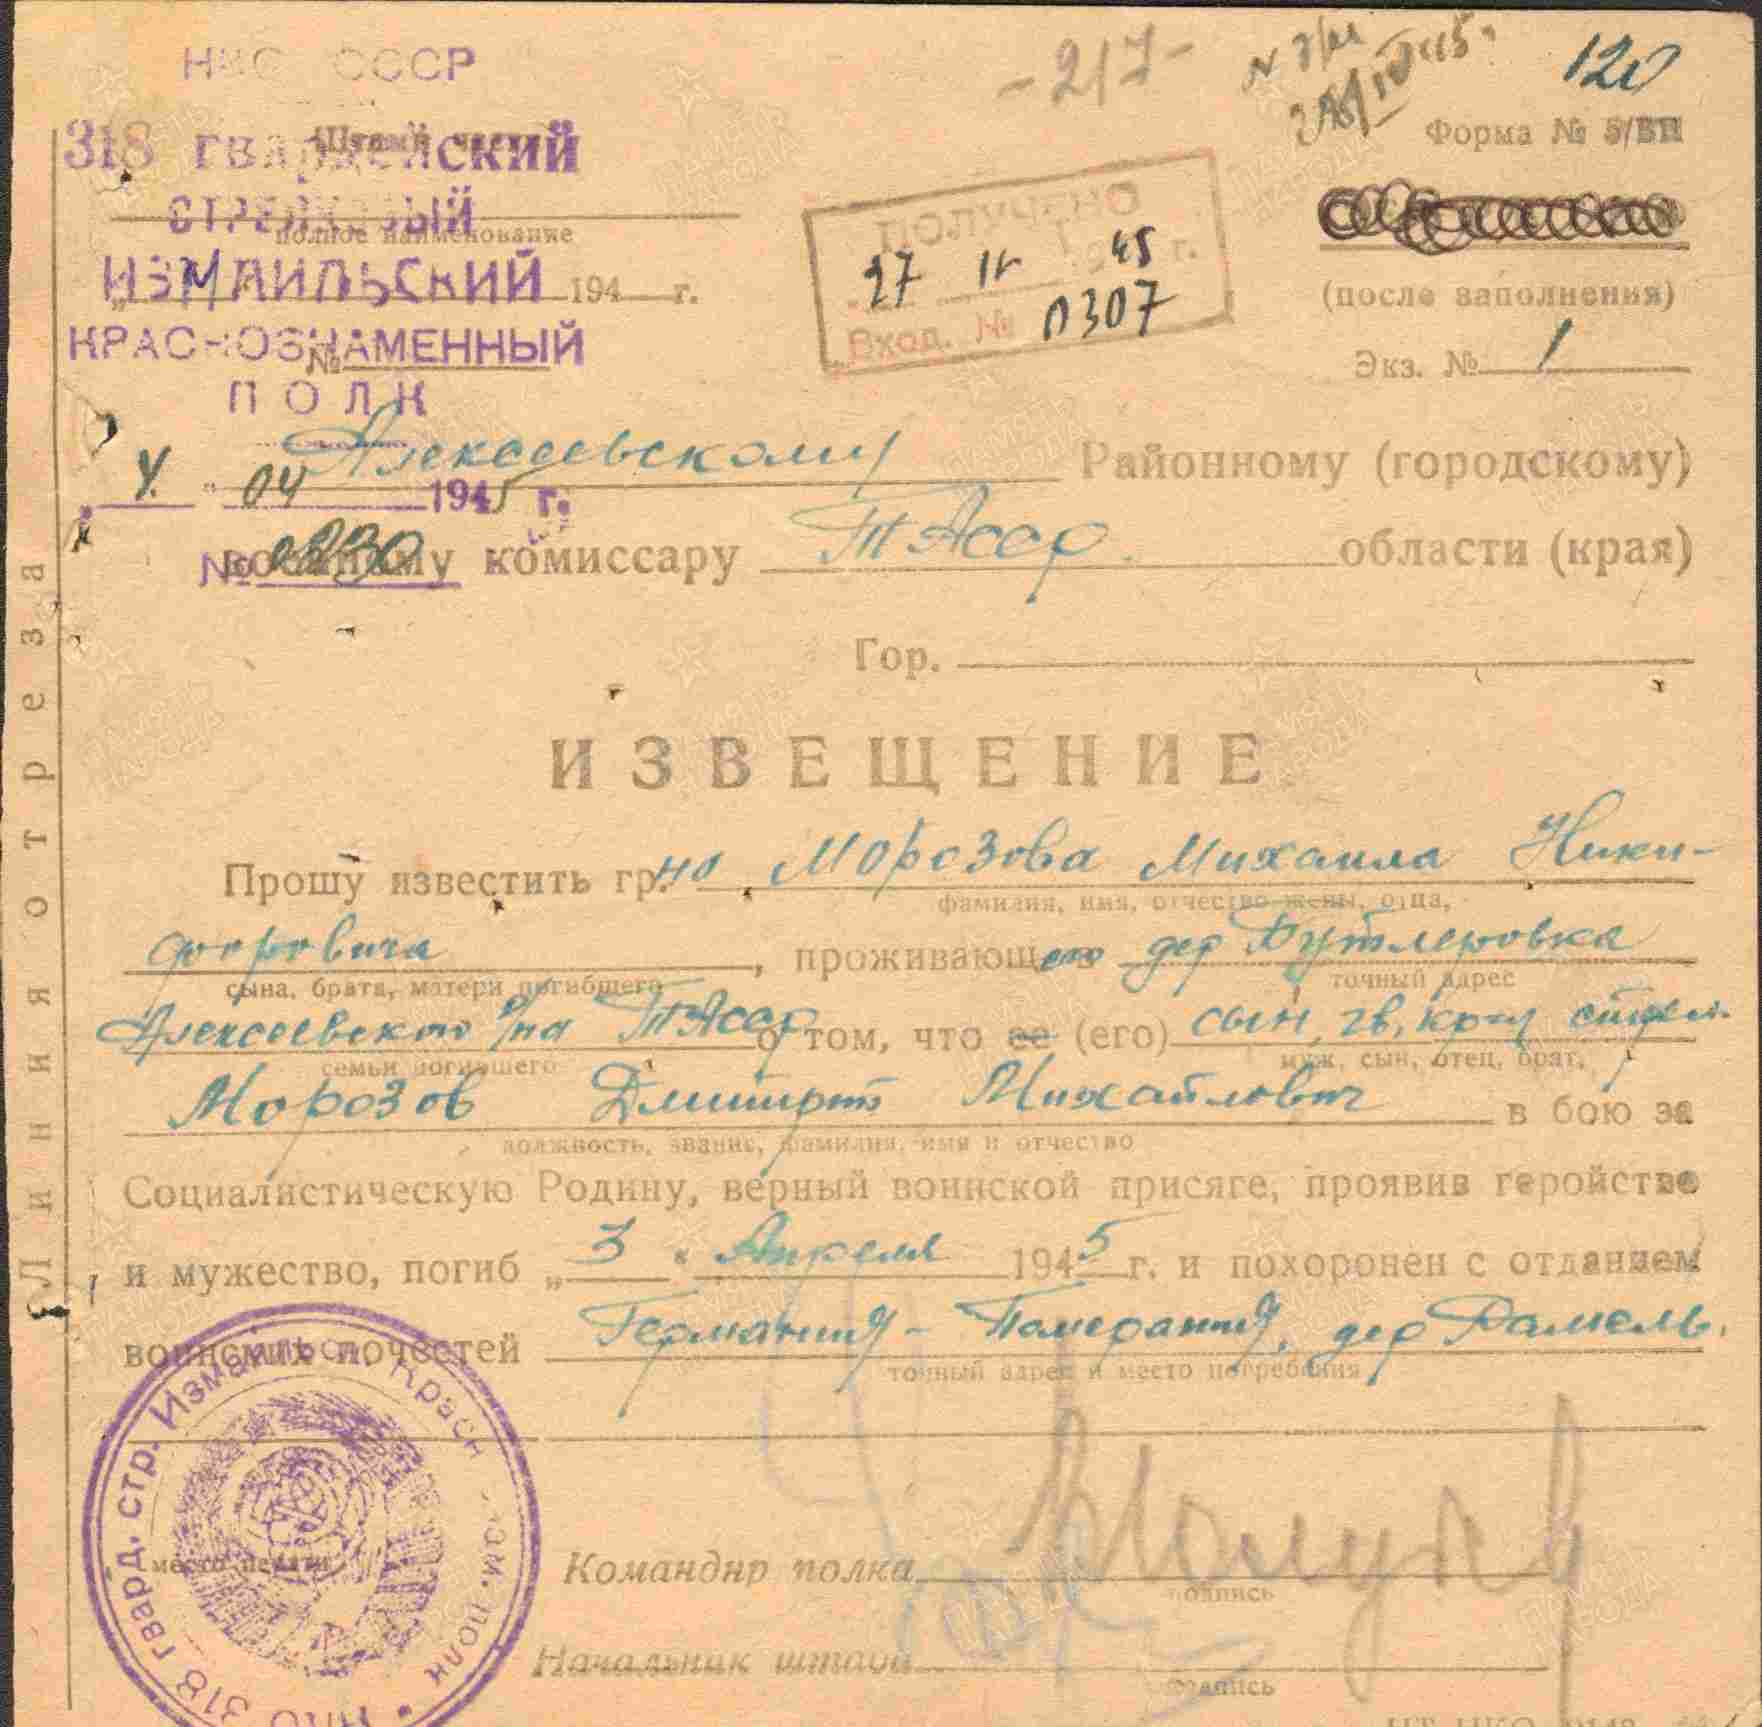 НКО СССР
318 гвардейский
Штамп части
СТРЕЛКОВЫЙ
полное наименование
ИЗМАИЛЬСКИЙ
194 г.
КРАСНОЗНАМЕННЫЙ
№
ПОЛК
4. 04 1945 г.
№
-217-
120
Форма № 5/БП
ПОЛУЧЕНО
27 IV 45 г.
Вход. № 0307
(после заполнения)
Экз. № 1
Алексеевскому Районному (городскому)
военному комиссару ТАССР. области (края)
Гор.
ИЗВЕЩЕНИЕ
Прошу известить гр.на Морозова Михаила Ники-
фамилия, имя, отчество жены, отца,
форовича, проживающего дер Бутлеровка
сына, брата, матери погибшего точный адрес
Алексеевского р/на ТАССР о том, что ее (его) сын, гв, кр-ц стрел.
семьи погибшего муж, сын, отец, брат,
Морозов Дмитрий Михайлович в бою за
должность, звание, фамилия, имя и отчество
Социалистическую Родину, верный воинской присяге, проявив геройство
и мужество, погиб „3 " Апреля 1945 г. и похоронен с отданием
воинских почестей Германия - Померания, дер Рамель.
точный адрес и место погребения
место печати
НКО 318 гвард. стр. Измаильск. Красн
полк
Командир полка
подпись
Начальник штаба
подпись
Линия отреза